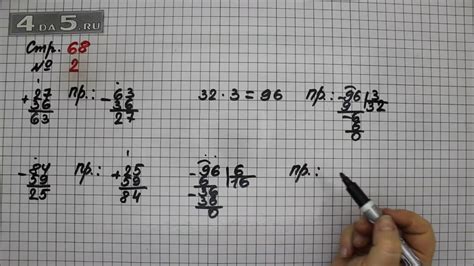 4DA5.RU
Стр. 68
№ 2
+27 пр.: -63 32 · 3 = 96 пр.: -96 | 3
36 36 9 32
63 27 -6
6
0
-84 пр.: +25 -96 | 6 пр.:
59 59 6 16
25 84 -36
36
0